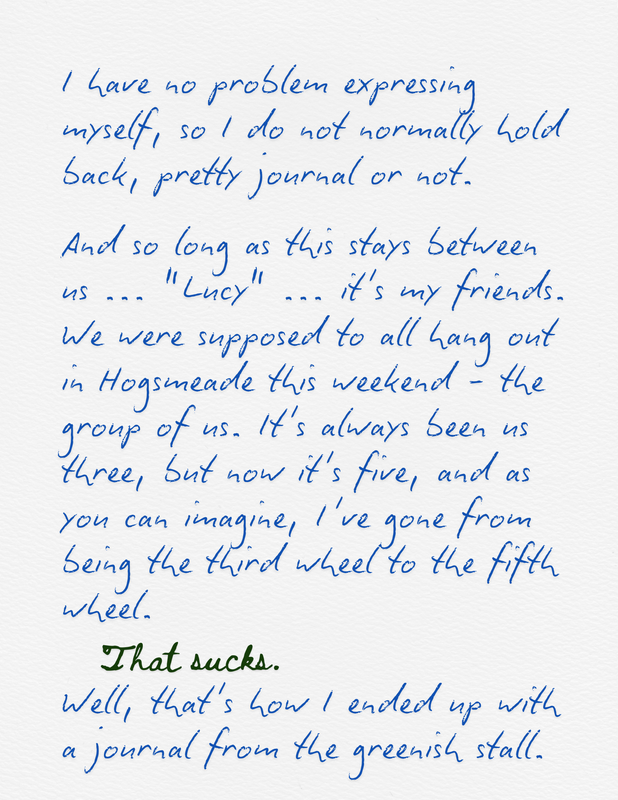 I have no problem expressing
myself, so I do not normally hold
back, pretty journal or not.
And so long as this stays between
us ... "Lucy" ... it's my friends.
We were supposed to all hang out
in Hogsmeade this weekend - the
group of us. It's always been us
three, but now it's five, and as
you can imagine, I've gone from
being the third wheel to the fifth
wheel.
That sucks.
Well, that's how I ended up with
a journal from the greenish stall.